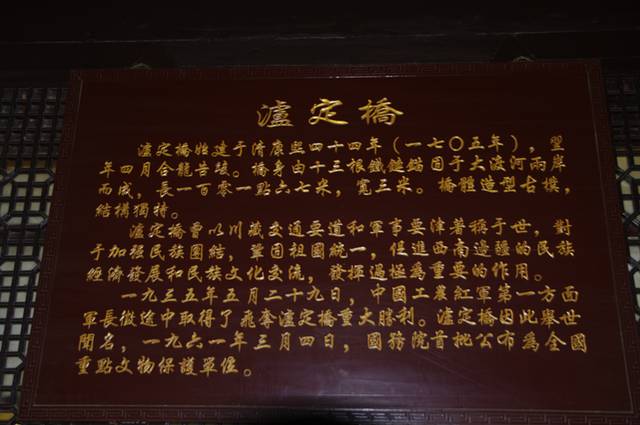 瀘定橋
瀘定橋始建于清康熙四十四年（一七〇五年），翌
年四月合龍告竣。橋身由十三根鐵鏈錨固于大渡河兩岸
而成，長一百零一點六七米，寬三米。橋體造型古樸，
結構獨特。
瀘定橋曾以川藏交通要道和軍事要津著稱于世，對
于加強民族團結，鞏固祖國統一，促進西南邊疆的民族
經濟發展和民族文化交流，發揮過極為重要的作用。
一九三五年五月二十九日，中國工農紅軍第一方面
軍長徵途中取得了飛奪瀘定橋重大勝利。瀘定橋因此舉世
聞名，一九六一年三月四日，國務院首批公布為全國
重點文物保護單位。